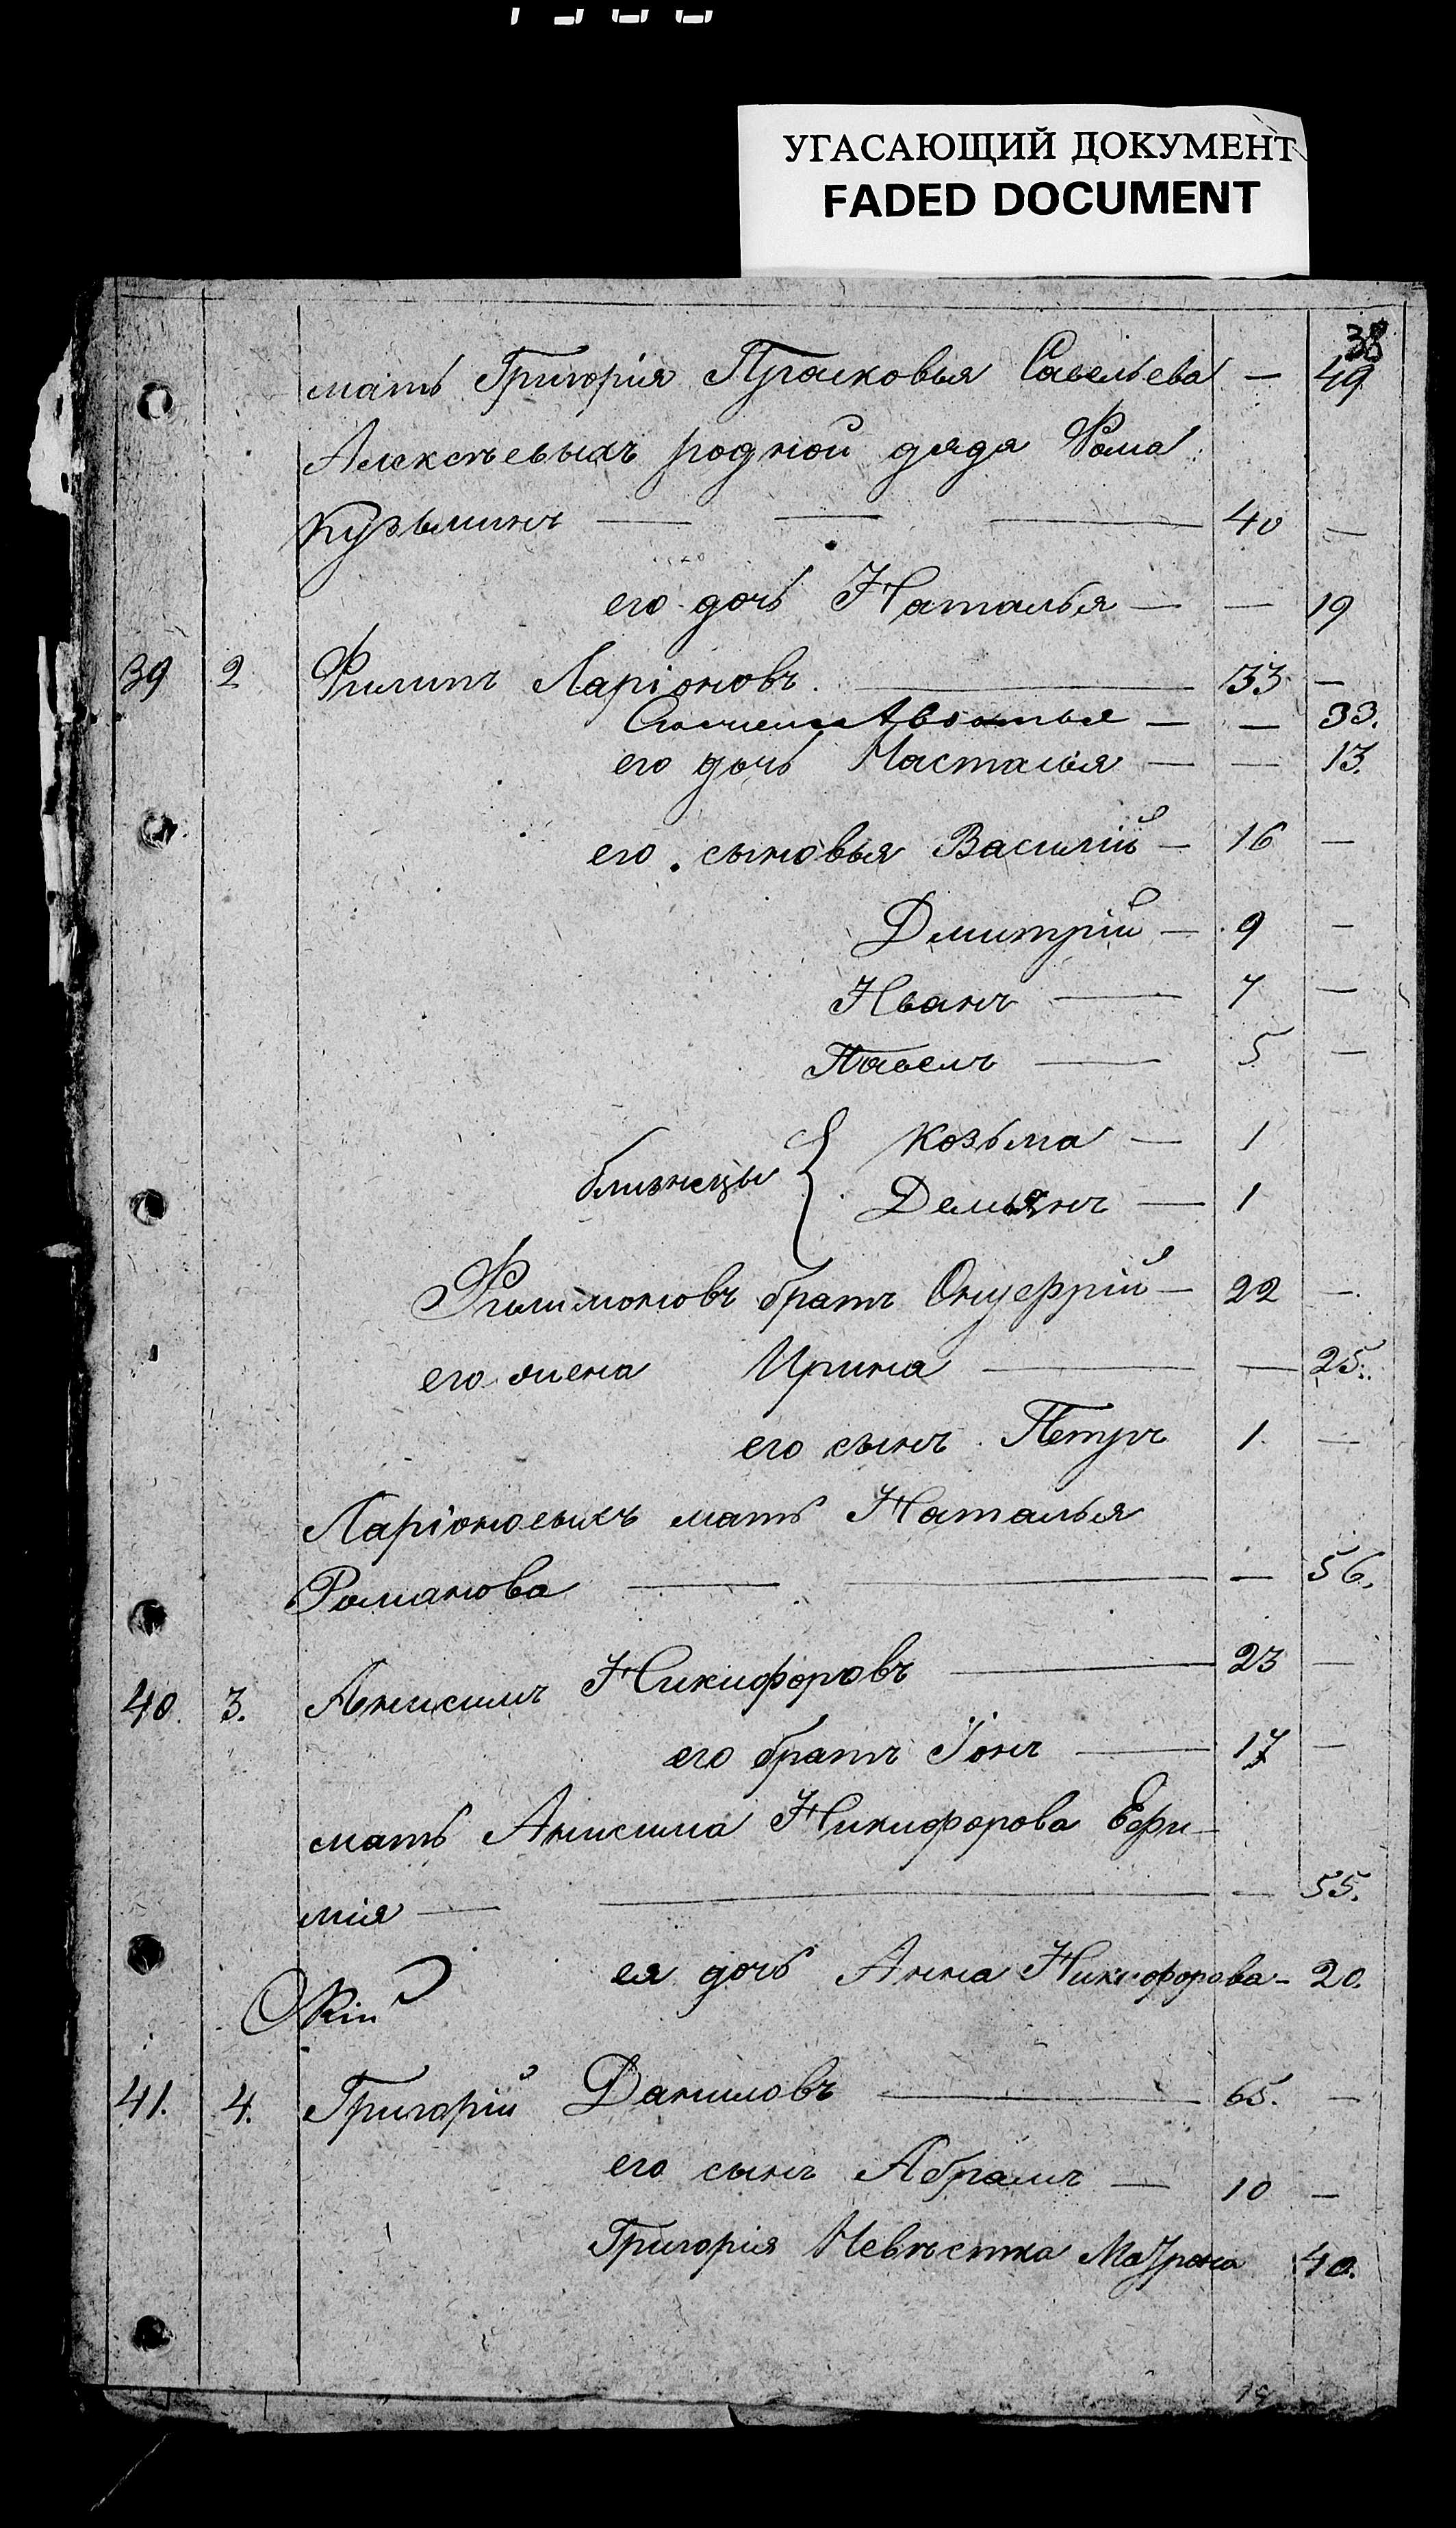 УГАСАЮЩИЙ ДОКУМЕНТ
FADED DOCUMENT
38
мать Григорія Прасковья Савельева — 49
Алексѣевыхъ родной дядя Фома
Кузьминъ — — — 40 —
его дочь Наталья — — 19
39 2 Филипъ Ларіоновъ. — 33 —
Авдотья — — 33.
его дочь Насталья — — 13.
его сыновья Василій — 16 —
Дмитрій — 9 —
Иванъ — 7 —
Павелъ — 5 —
близнецы { Козьма — 1
Демьянъ — 1
Филимоновъ братъ Онуфрій — 22 —
его жена Ирина — — 25.
его сынъ Петръ 1. —
Ларіоновыхъ мать Наталья
Романова — — — 56.
40. 3. Анисимъ Никифоровъ — 23 —
его братъ Іонъ — 17 —
мать Анисима Никифорова Ефи-
мія — — — 55.
ея дочь Анна Никифорова — 20.
41. 4. Григорій Даниловъ — 65. —
его сынъ Абрамъ — 10 —
Григорія Невѣстка Матрона 40.